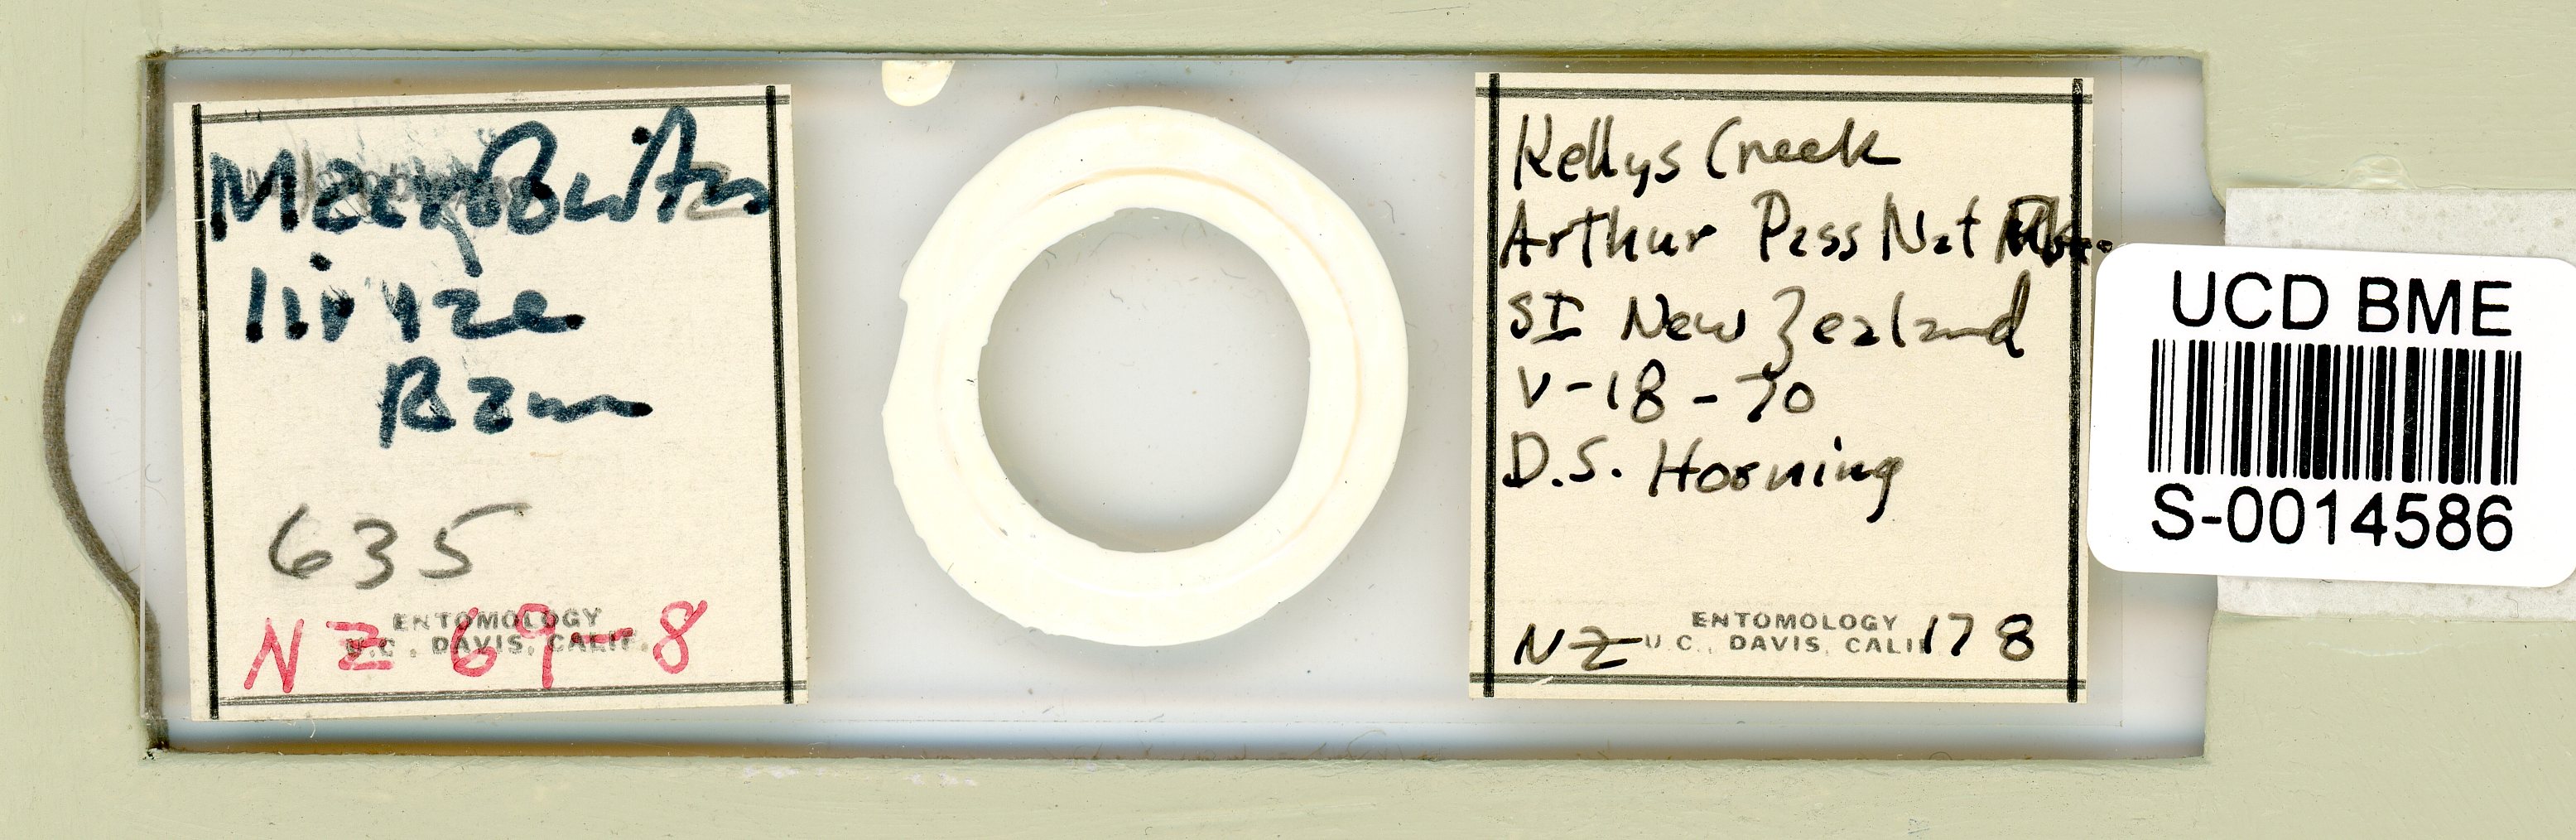 MacroBiotus
liviae
Ram
635
ENTOMOLOGY
U.C. DAVIS, CALIF.
NZ 69-8
Kellys Creek
Arthur Pass Nat
SI New Zealand
V-18-70
D.S. Horning
ENTOMOLOGY
U.C. DAVIS, CALIF
NZ 178
UCD BME
S-0014586